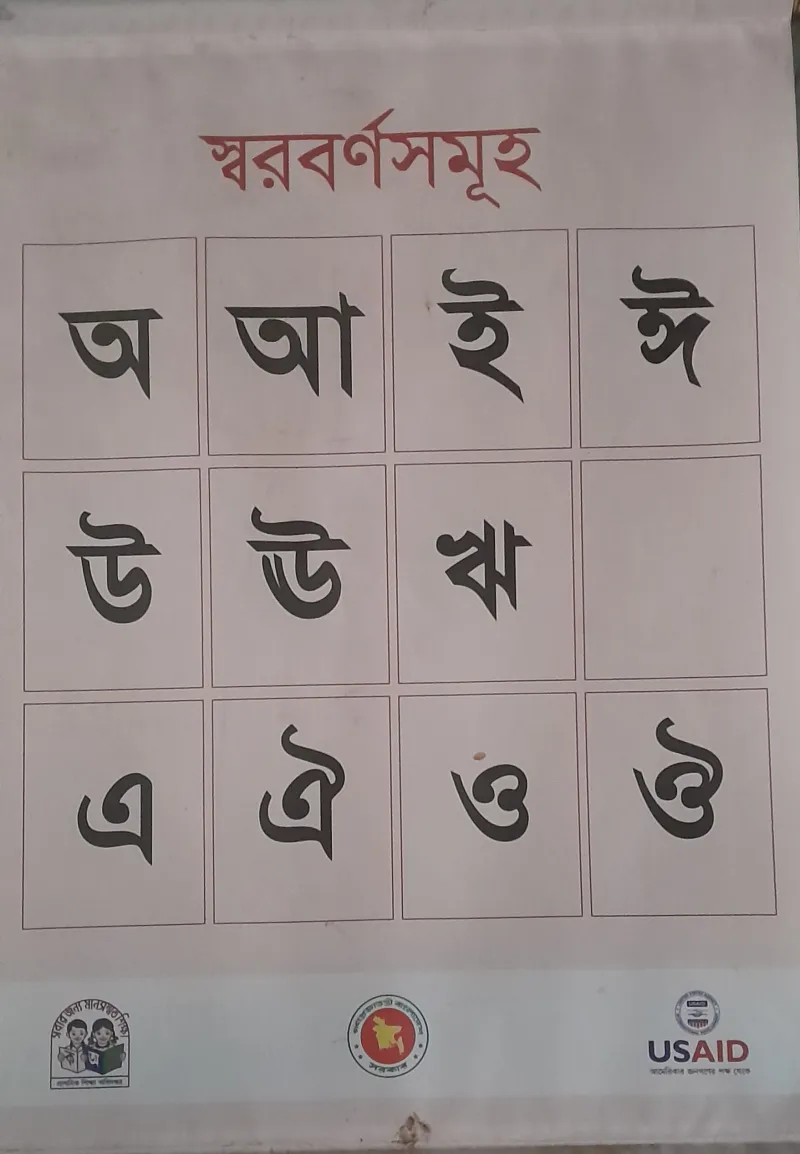 স্বরবর্ণসমূহ
অ আ ই ঈ
উ ঊ ঋ
এ ঐ ও ঔ
সবার জন্য মানসম্মত শিক্ষা
প্রাথমিক শিক্ষা অধিদপ্তর
গণপ্রজাতন্ত্রী বাংলাদেশ
সরকার
USAID
USAID
আমেরিকার জনগণের পক্ষ থেকে